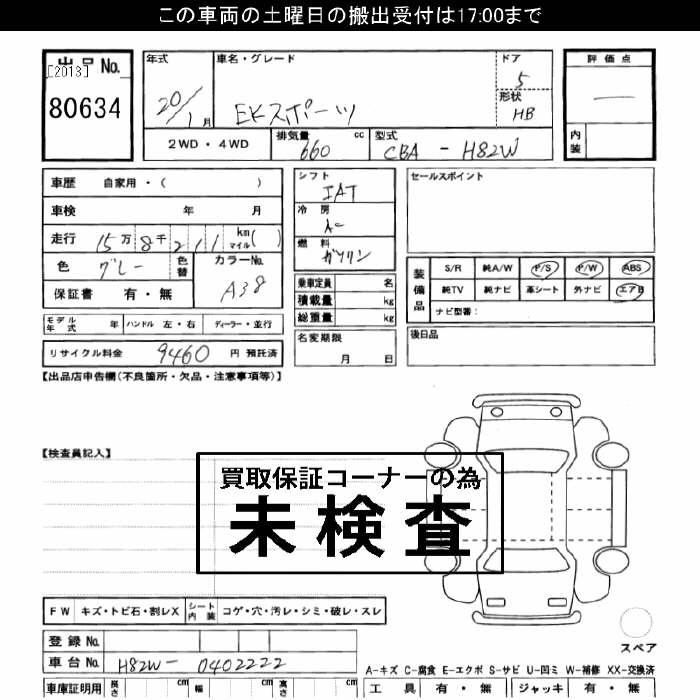 この車両の土曜日の搬出受付は17:00まで
出品No.
[2013]
80634
年式
20/1月
車名・グレード
EKスポーツ
ドア
5
形状
HB
評価点
—
内装
2WD・4WD
排気量
660 cc
型式
CBA - H82W
車歴 自家用・( )
車検 年 月
走行 15万8千211 km マイル( )
色 グレー 色替
カラーNo.
A38
保証書 有・無
シフト
IAT
冷房
燃料
ガソリン
乗車定員 名
積載量 kg
総重量 kg
セールスポイント
装備品
S/R 純A/W P/S P/W ABS
純TV 純ナビ 革シート 外ナビ エアB
ナビ型番:
モデル年式 年 ハンドル 左・右 ディーラー・並行
名変期限
月 日
後日品
リサイクル料金 9460 円 預託済
【出品店申告欄(不良箇所・欠品・注意事項等)】
【検査員記入】
買取保証コーナーの為
未検査
FW キズ・トビ石・割レX シート内装 コゲ・穴・汚レ・シミ・破レ・スレ
登録No.
車台No. H82W- 0402222
スペア
A-キズ C-腐食 E-エクボ S-サビ U-凹ミ W-補修 XX-交換済
車庫証明用 長さ cm 幅 cm 高さ cm
工具 有・無 ジャッキ 有・無